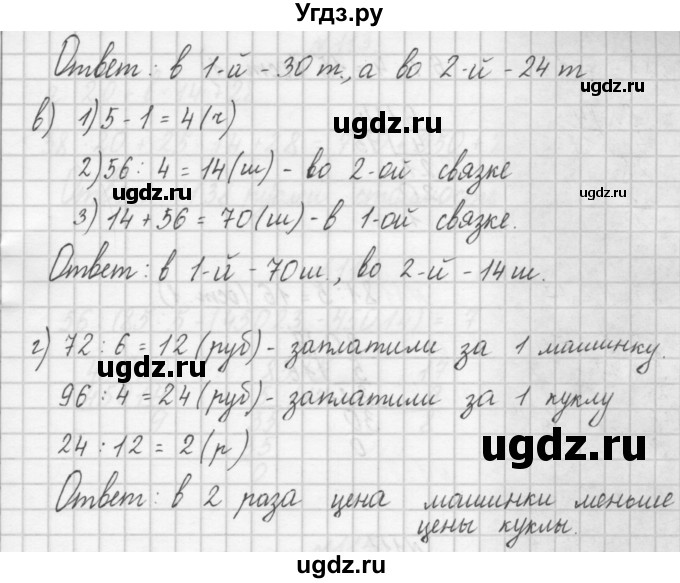 Угдз.ру
Ответ: в 1-й - 30 т., а во 2-й - 24 т
ugdz.ru
в) 1) 5 - 1 = 4 (г)
ugdz.ru
2) 56 : 4 = 14 (ш) - во 2-ой связке
ugdz.ru
ugdz.ru
3) 14 + 56 = 70 (ш) - в 1-ой связке.
Ответ: в 1-й - 70 ш., во 2-й - 14 ш.
г) 72 : 6 = 12 (руб) - заплатили за 1 машинку.
ugdz.ru
96 : 4 = 24 (руб) - заплатили за 1 куклу
24 : 12 = 2 (р)
ugdz.ru
Ответ: в 2 раза цена машинки меньше
цены куклы.
ugdz.ru
Угдз.ру